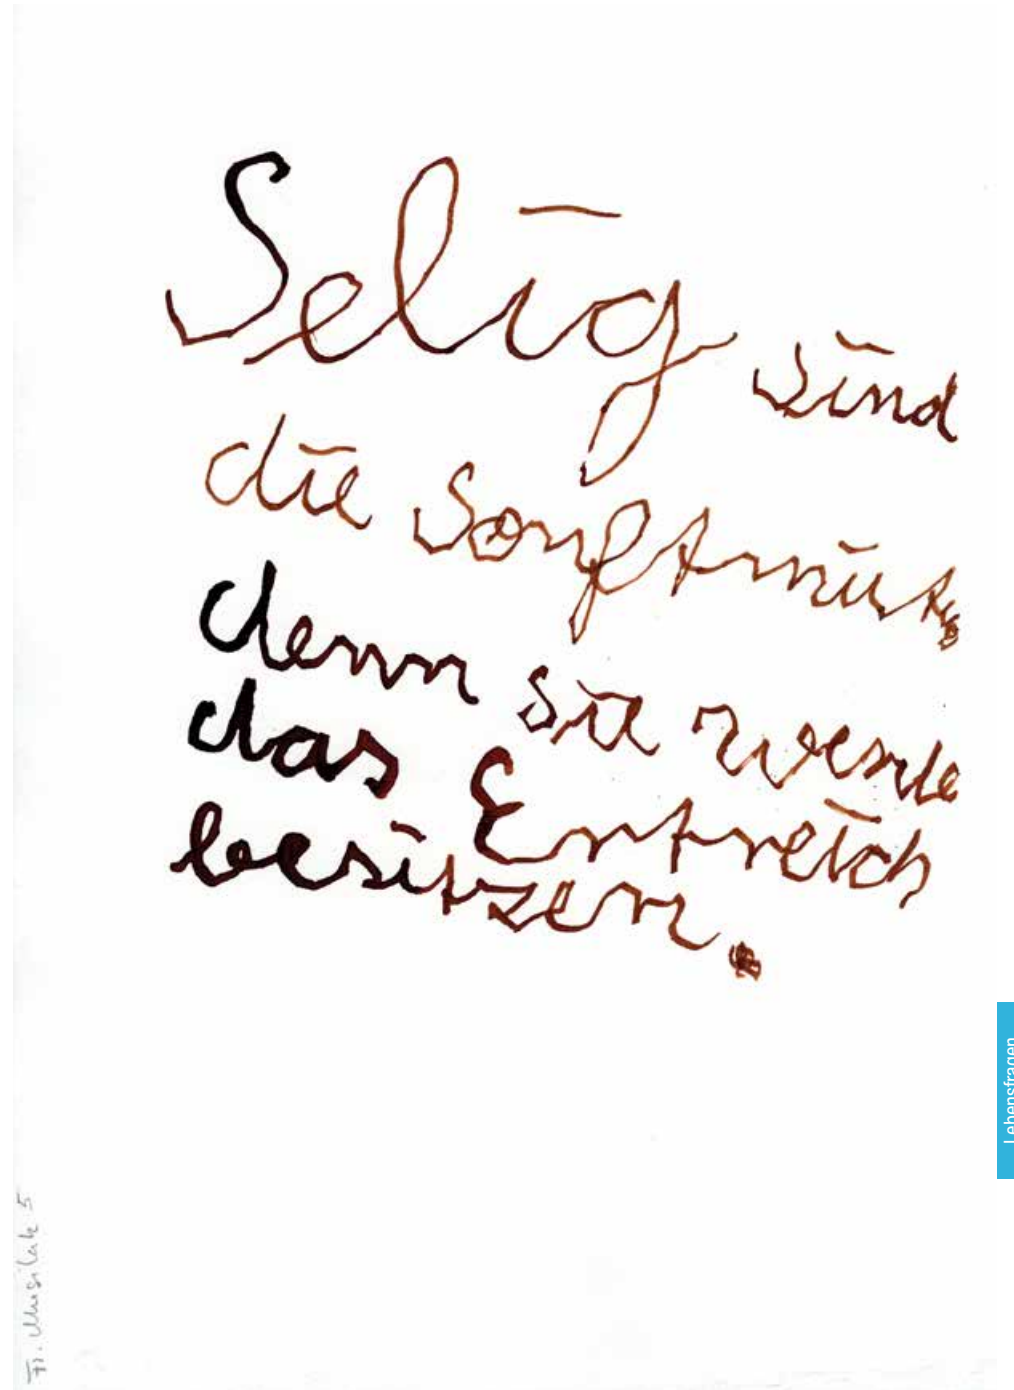 Selig sind
die Sonftmut.
denn sie werde
das Entreich
besitzen.
Lebensfragen